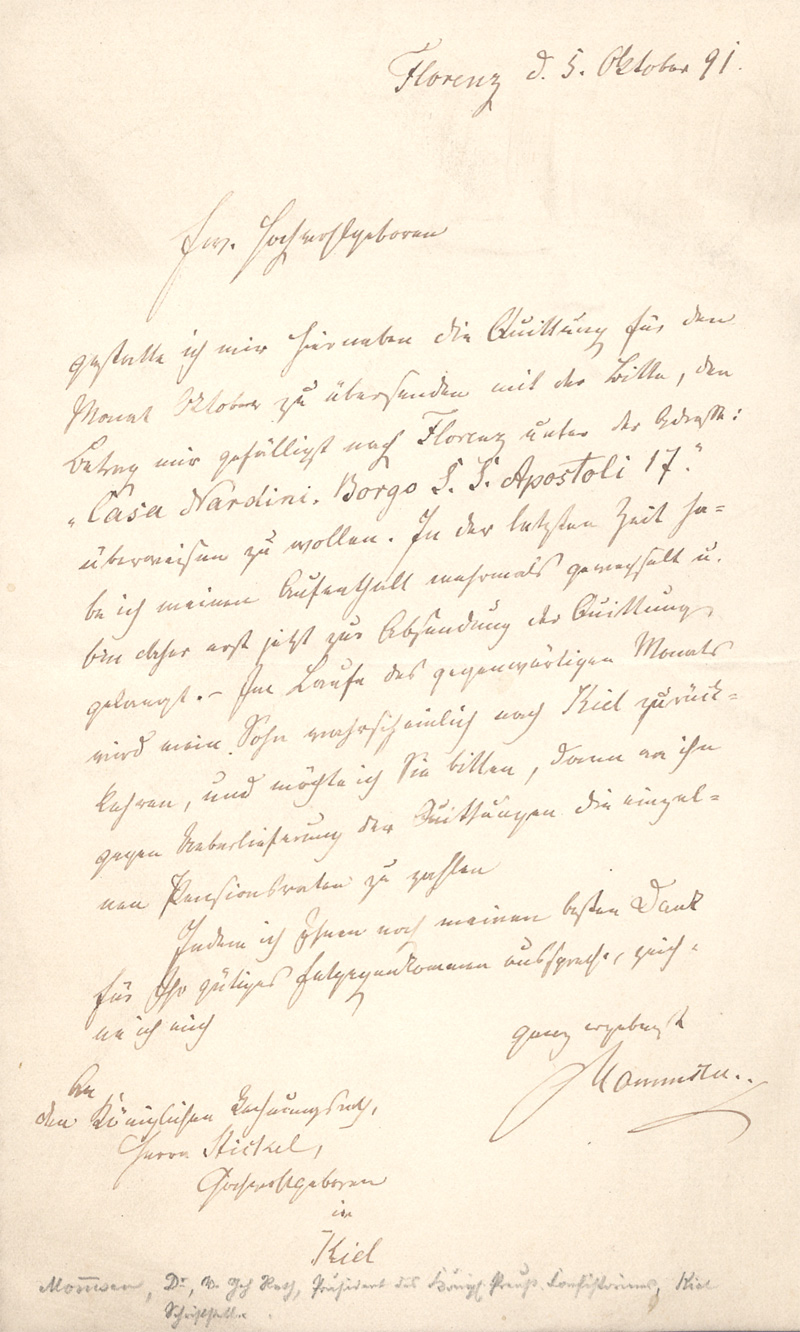 Florenz d. 5. Oktober 91.
Ew. Hochwohlgeboren
gestatte ich mir hierneben die Quittung für den
Monat Oktober zu übersenden mit der Bitte, den
Betrag mir gefälligst nach Florenz unter der Adresse:
„Casa Nardini. Borgo S. S. Apostoli 17."
überweisen zu wollen. In der letzten Zeit ha=
be ich meinen Aufenthalt mehrmals gewechselt u.
bin daher erst jetzt zur Absendung der Quittung
gelangt. – Im Laufe des gegenwärtigen Monats
wird mein Sohn wahrscheinlich nach Kiel zurück=
kehren, und möchte ich Sie bitten, dann an ihn
gegen Ueberlieferung der Quittungen die einzel=
nen Pensionsraten zu zahlen
Indem ich Ihnen noch meinen besten Dank
für Ihr gütiges Entgegenkommen ausspreche, zeich=
ne ich mich
ganz ergebenst
Mommsen.
An
den Königlichen Rechnungsrath,
Herrn Stickel,
Hochwohlgeboren
in
Kiel
Mom̅sen, Dr, W. Geh Rath, Präsident des Königl. Preuß. Consistoriums, Kiel
Schriftsteller